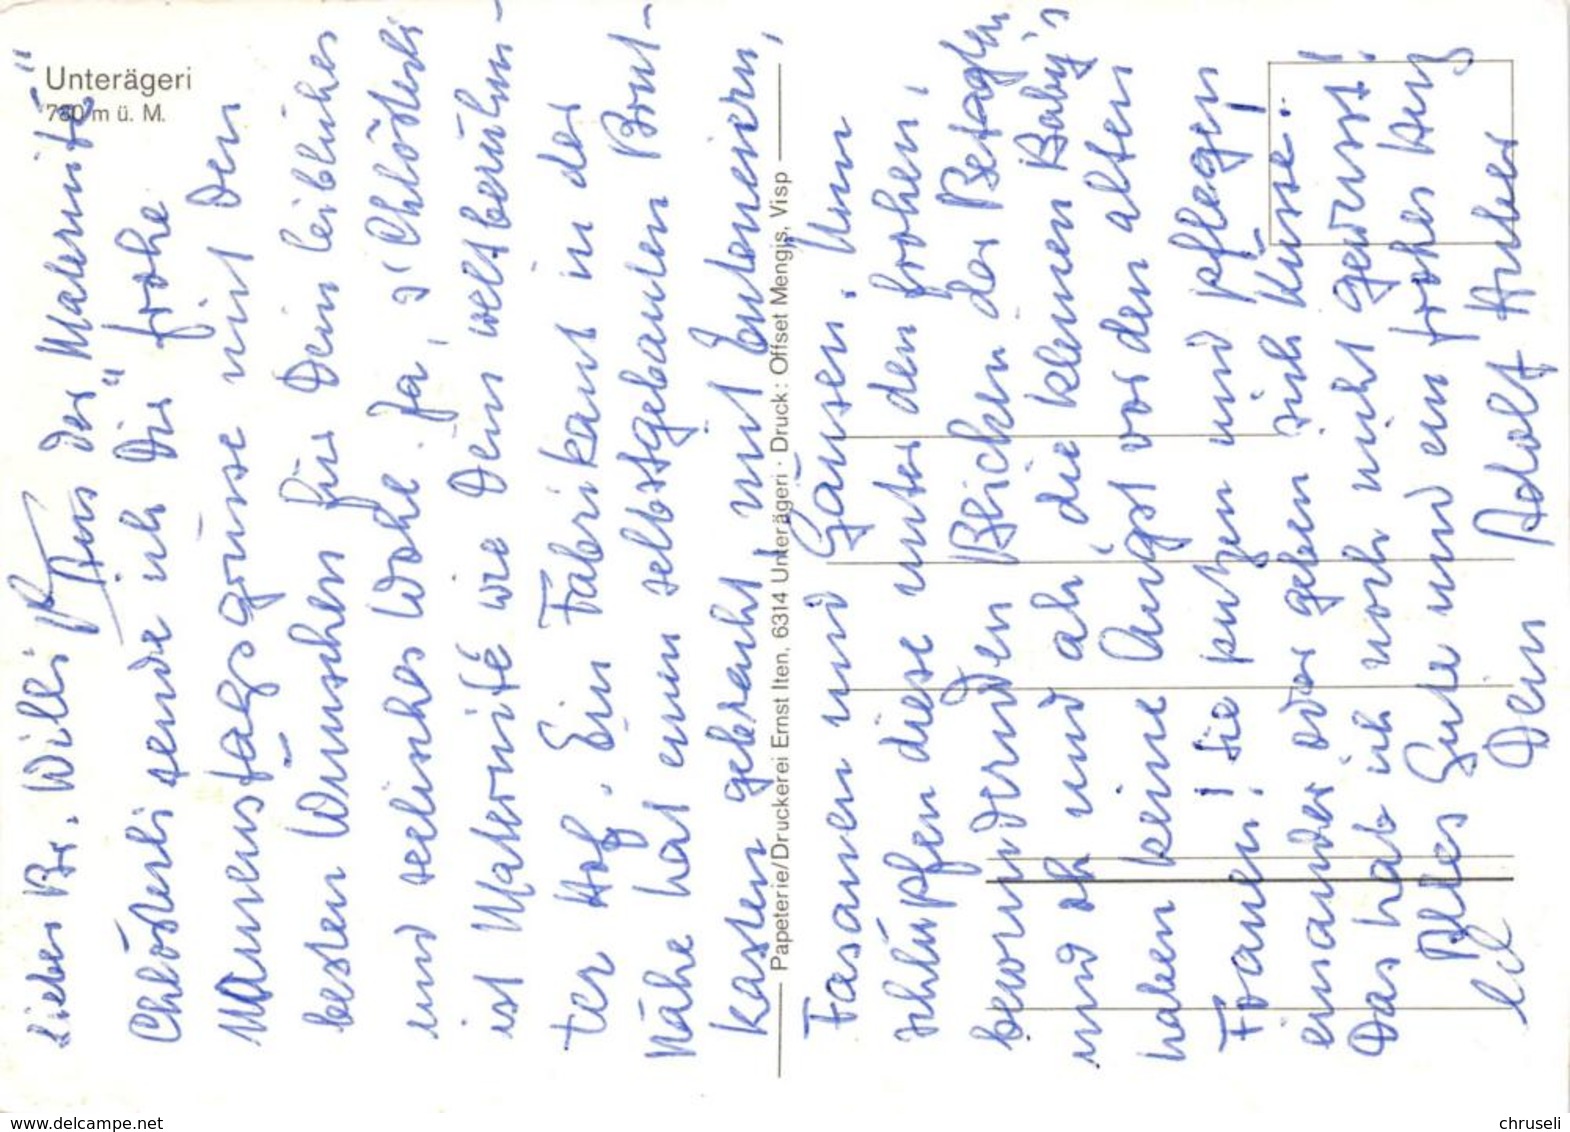 Unterägeri
780 m ü. M.
Lieber Br. Willi! Aus der "Maternité"
Chlösterli sende ich "Dir" frohe
Namenstagsgrüsse mit den
besten Wünschen für Dein leibliches
und seelisches Wohl. Ja, s' Chlösterli
ist Maternité wie Dein weltberühm-
ter Hof. Ein Fabrikant in der
Nähe hat einen selbstgebauten Brut-
kasten gebracht mit Enteneiern,
Fasanen und Gänsen. Nun
schlüpfen diese unter den frohen,
bewundernden Blicken der Betagten
und oh und ah, die kleinen Baby's
haben keine Angst vor den alten
Frauen! Sie putzen und pflegen
einander oder geben sich Küsse.
Das hab ich noch nicht gewusst!
Alles Gute und ein frohes Herz
Dein Adolf Huber
Papeterie/Druckerei Ernst Iten, 6314 Unterägeri · Druck: Offset Mengis, Visp
www.delcampe.net
chruseli